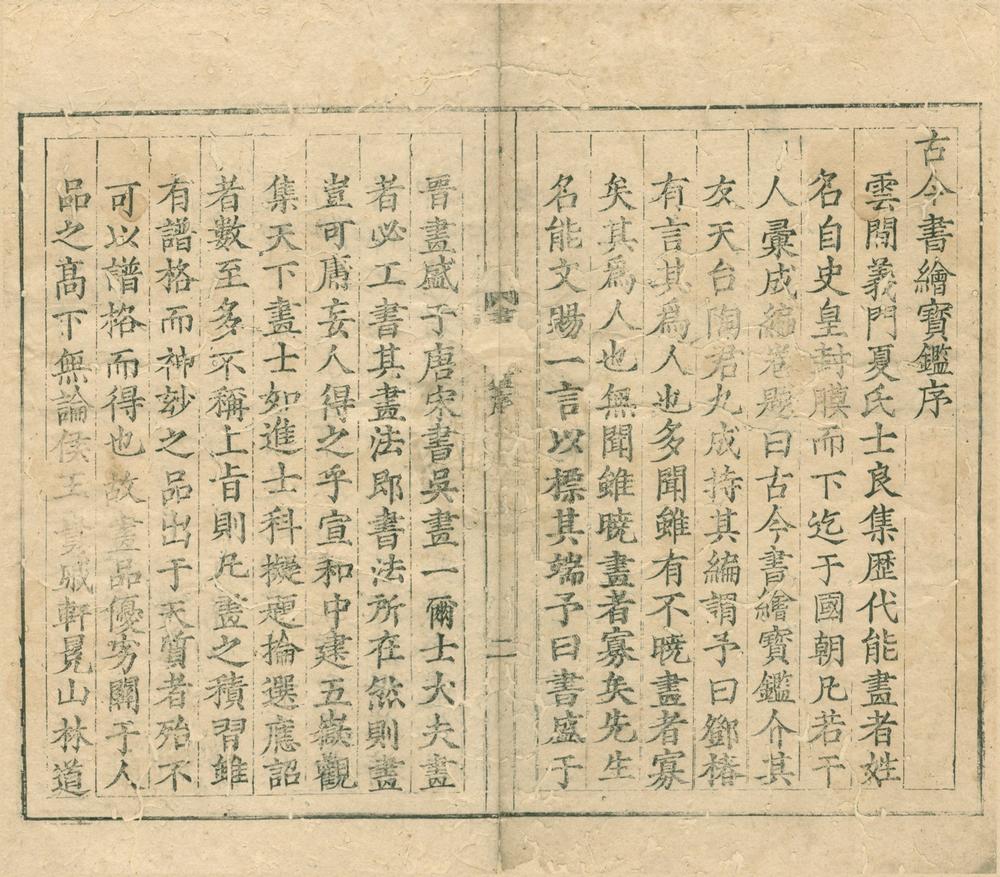 古今書繪寶鑑序
雲間義門夏氏士良集歷代能畫者姓
名自史皇封膜而下迄于國朝凡若干
人彙成編卷題曰古今書繪寶鑑介其
友天台陶君九成持其編謂予曰鄧椿
有言其爲人也多聞雖有不曉畫者寡
矣其爲人也無聞雖曉畫者寡矣先生
名能文賜一言以標其端予曰書盛于
二
晉畫盛于唐宋書與畫一爾士大夫畫
者必工書其畫法即書法所在然則畫
豈可庸妄人得之乎宣和中建五嶽觀
集天下畫士如進士科擬題掄選應詔
者數至多不稱上旨則凡畫之積習雖
有譜格而神玅之品出于天質者殆不
可以譜格而得也故畫品優劣關于人
品之高下無論侯王戚軒冕山林道